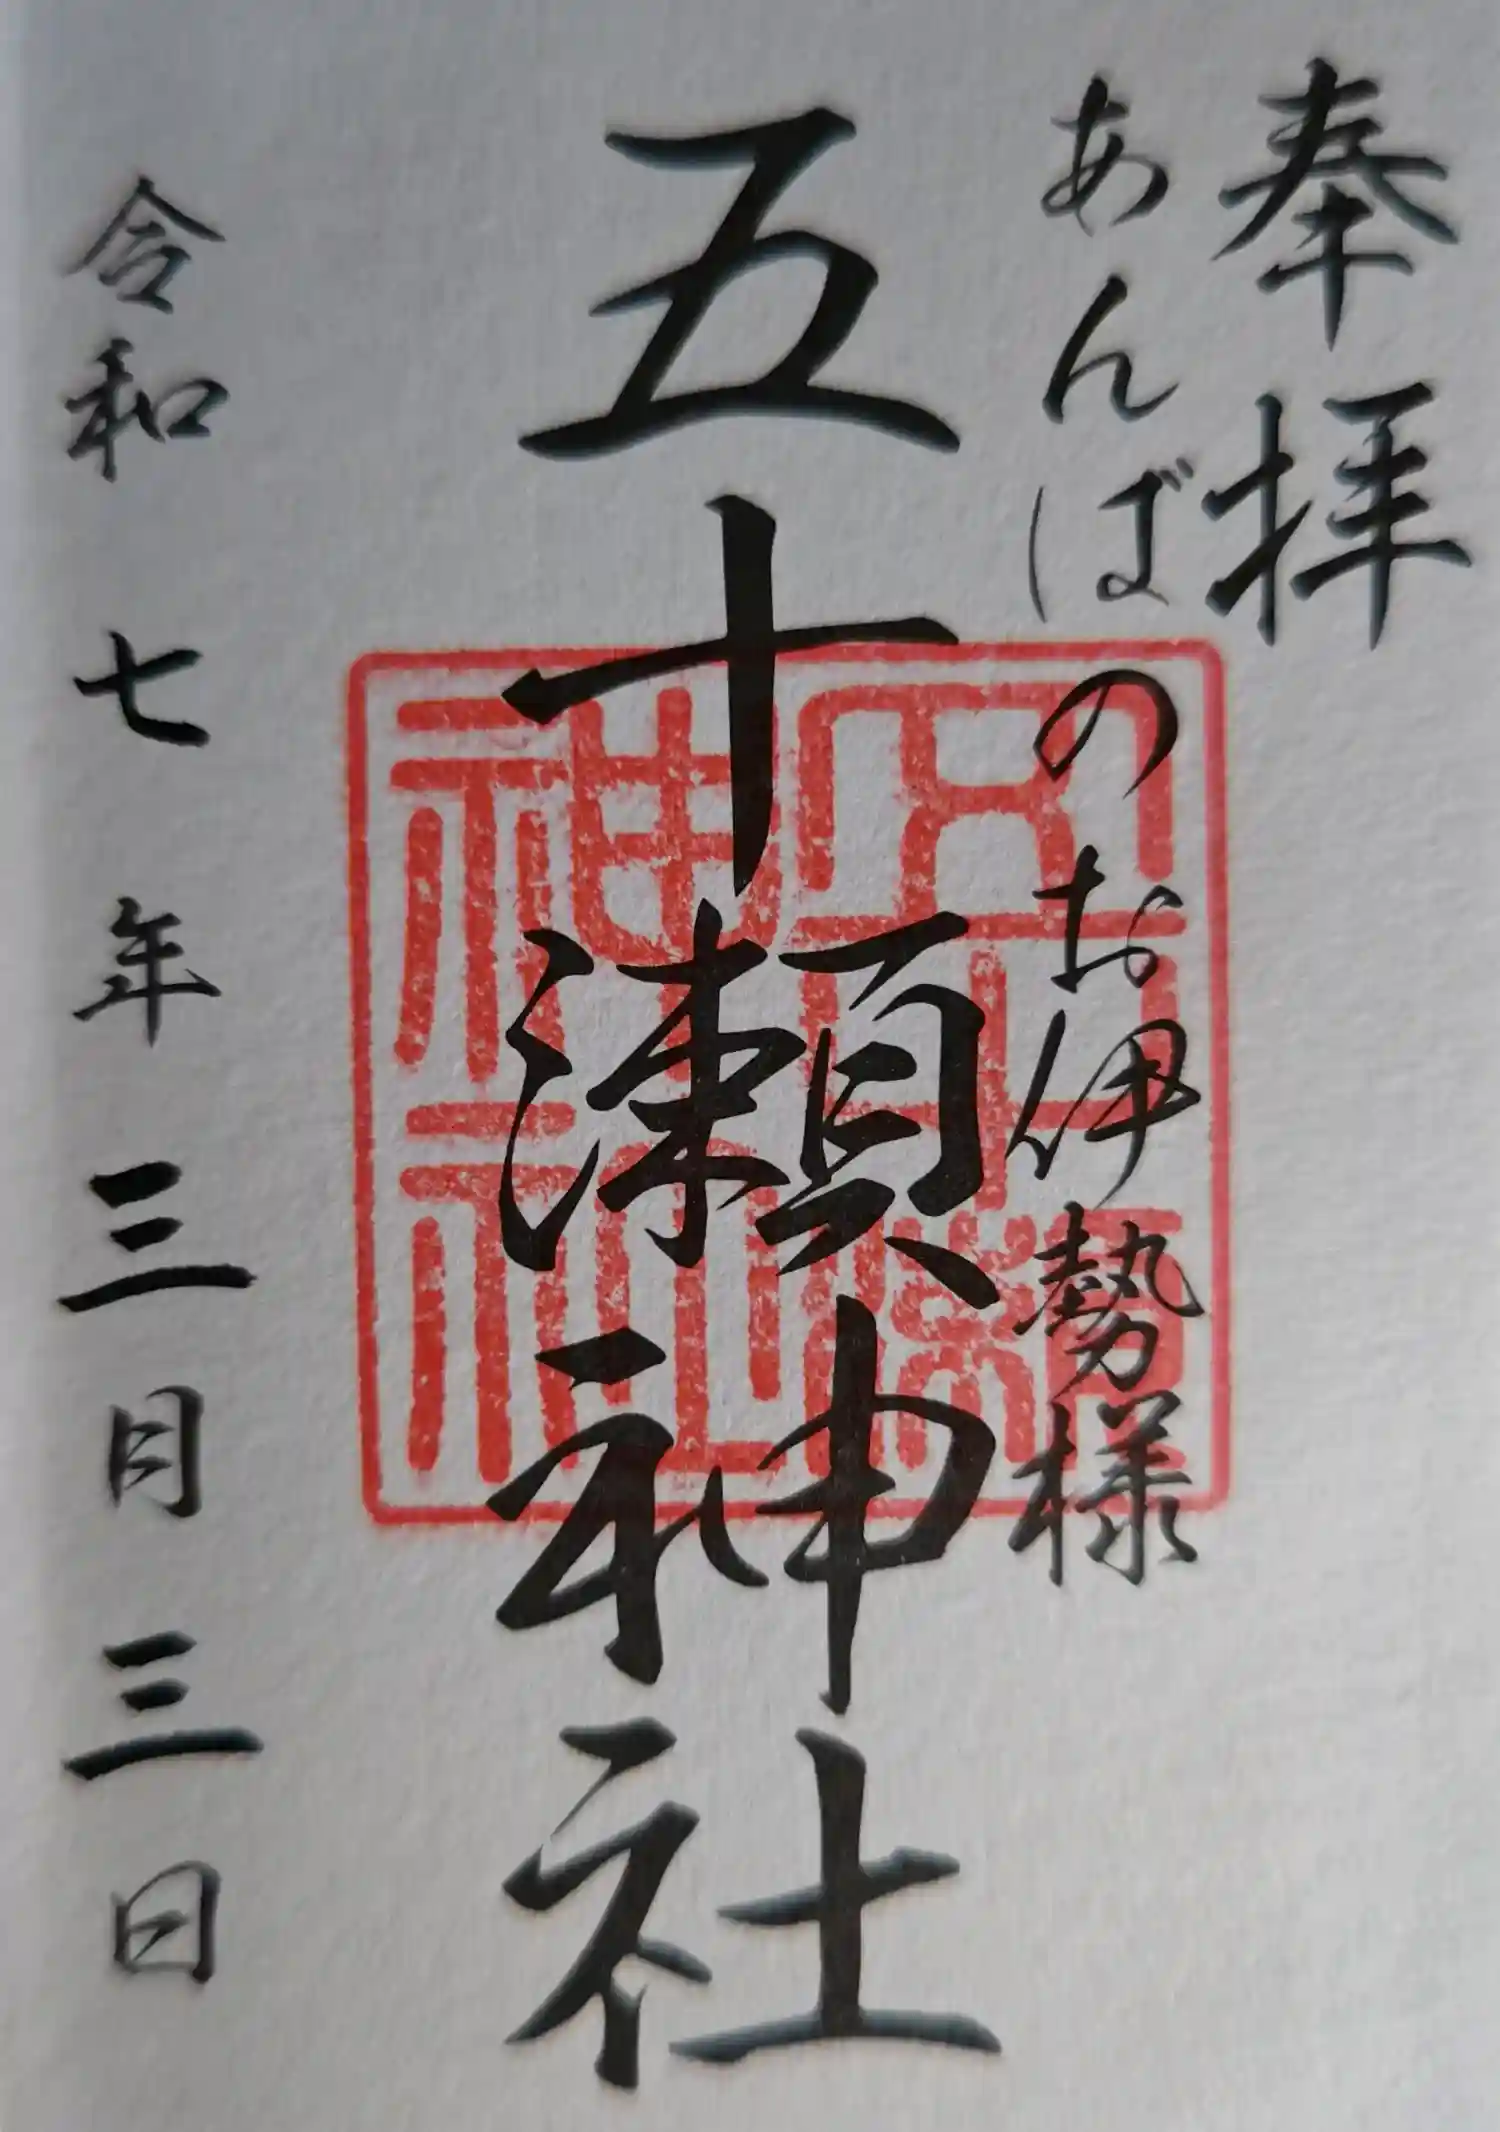 奉拝
あんばのお伊勢様
五十瀬神社
五十瀬
神社
令和七年三月三日